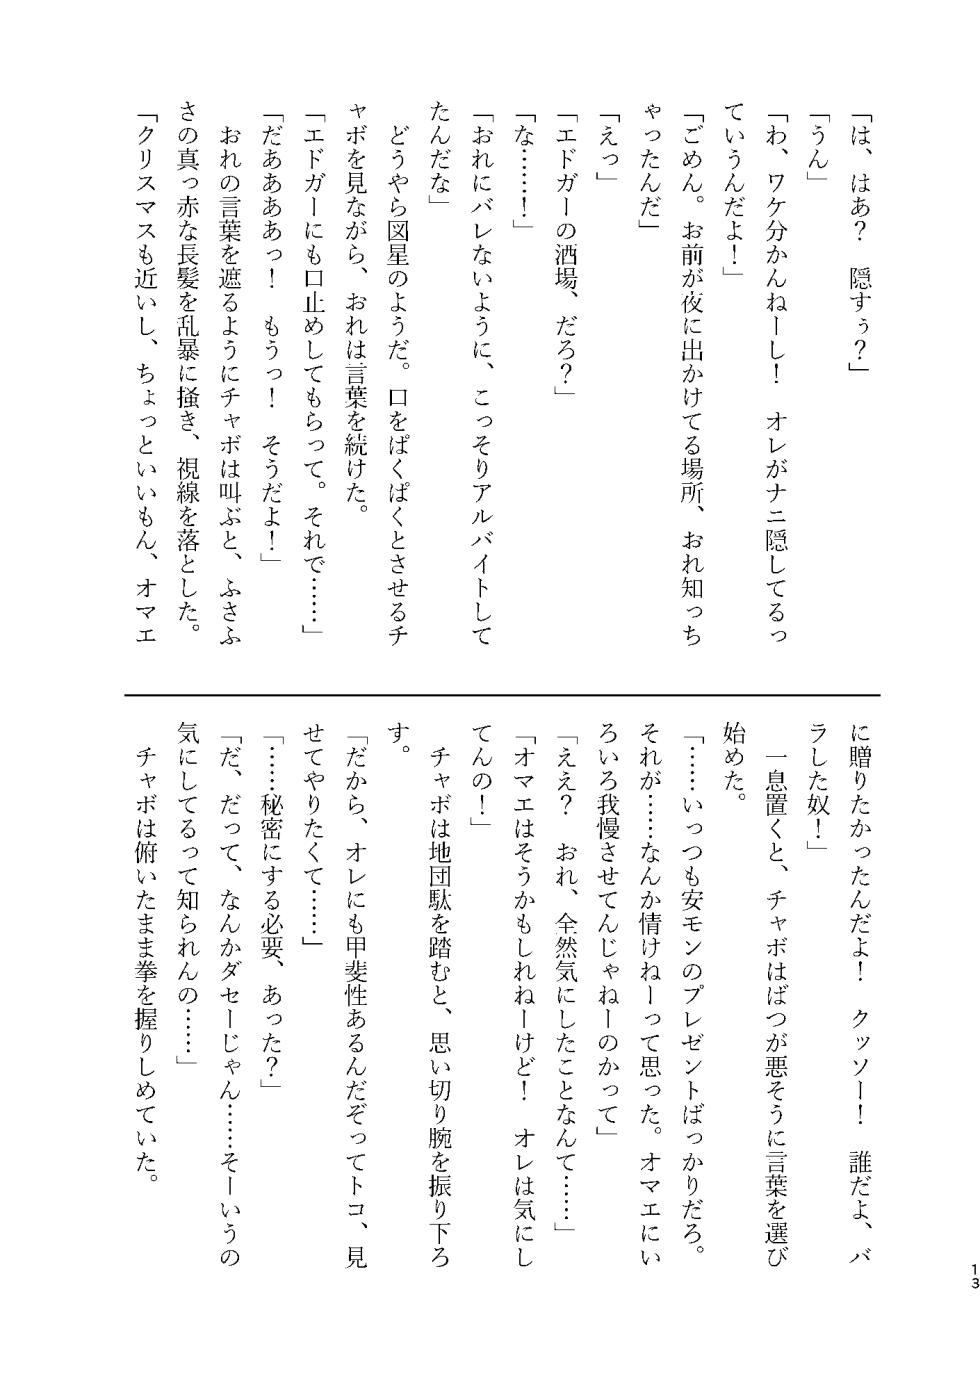 「は、はあ？　隠すぅ？」
「うん」
「わ、ワケ分かんねーし！　オレがナニ隠してるっ
ていうんだよ！」
「ごめん。お前が夜に出かけてる場所、おれ知っち
ゃったんだ」
「えっ」
「エドガーの酒場、だろ？」
「な……！」
「おれにバレないように、こっそりアルバイトして
たんだな」
　どうやら図星のようだ。口をぱくぱくとさせるチ
ャボを見ながら、おれは言葉を続けた。
「エドガーにも口止めしてもらって。それで……」
「だああああっ！　もうっ！　そうだよ！」
　おれの言葉を遮るようにチャボは叫ぶと、ふさふ
さの真っ赤な長髪を乱暴に掻き、視線を落とした。
「クリスマスも近いし、ちょっといいもん、オマエ
に贈りたかったんだよ！　クッソー！　誰だよ、バ
ラした奴！」
　一息置くと、チャボはばつが悪そうに言葉を選び
始めた。
「……いっつも安モンのプレゼントばっかりだろ。
それが……なんか情けねーって思った。オマエにい
ろいろ我慢させてんじゃねーのかって」
「ええ？　おれ、全然気にしたことなんて……」
「オマエはそうかもしれねーけど！　オレは気にし
てんの！」
　チャボは地団駄を踏むと、思い切り腕を振り下ろ
す。
「だから、オレにも甲斐性あるんだぞってトコ、見
せてやりたくて……」
「……秘密にする必要、あった？」
「だ、だって、なんかダセーじゃん……そーいうの
気にしてるって知られんの……」
　チャボは俯いたまま拳を握りしめていた。
13